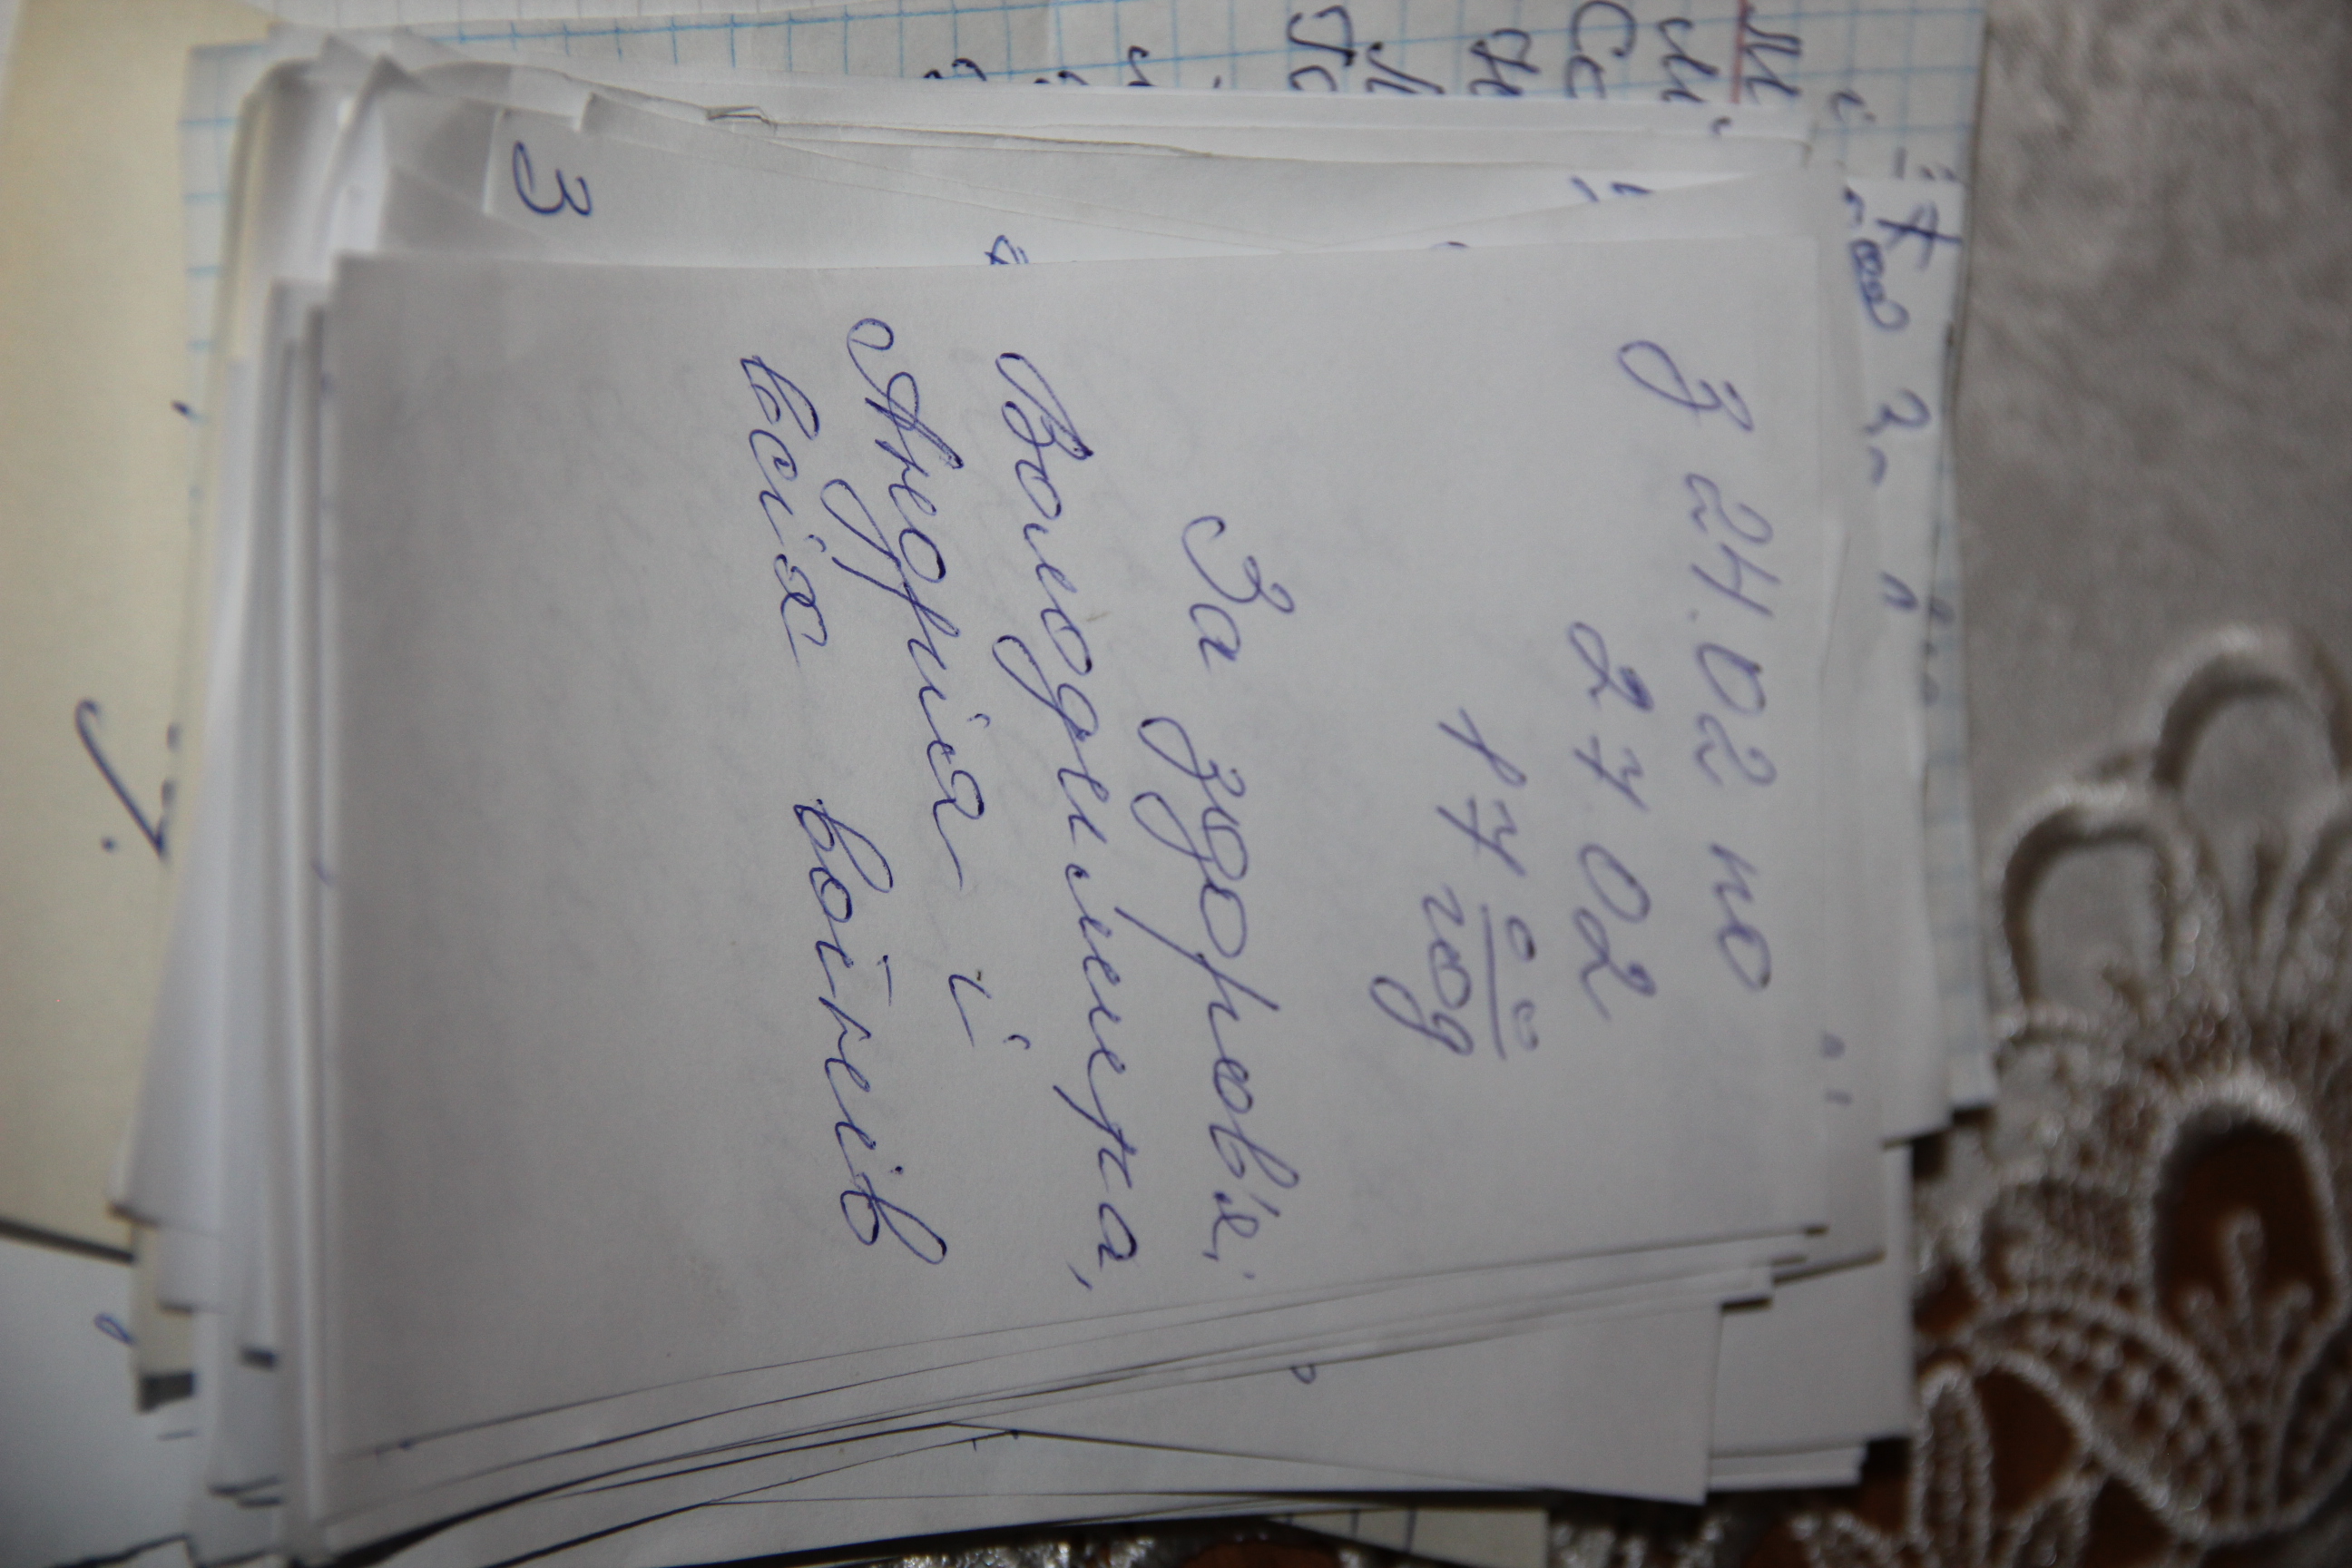 З 24.02 по
27 02
17 00 год
За здоров'я,
Володимира,
Андрія і
всіх воїнів
З